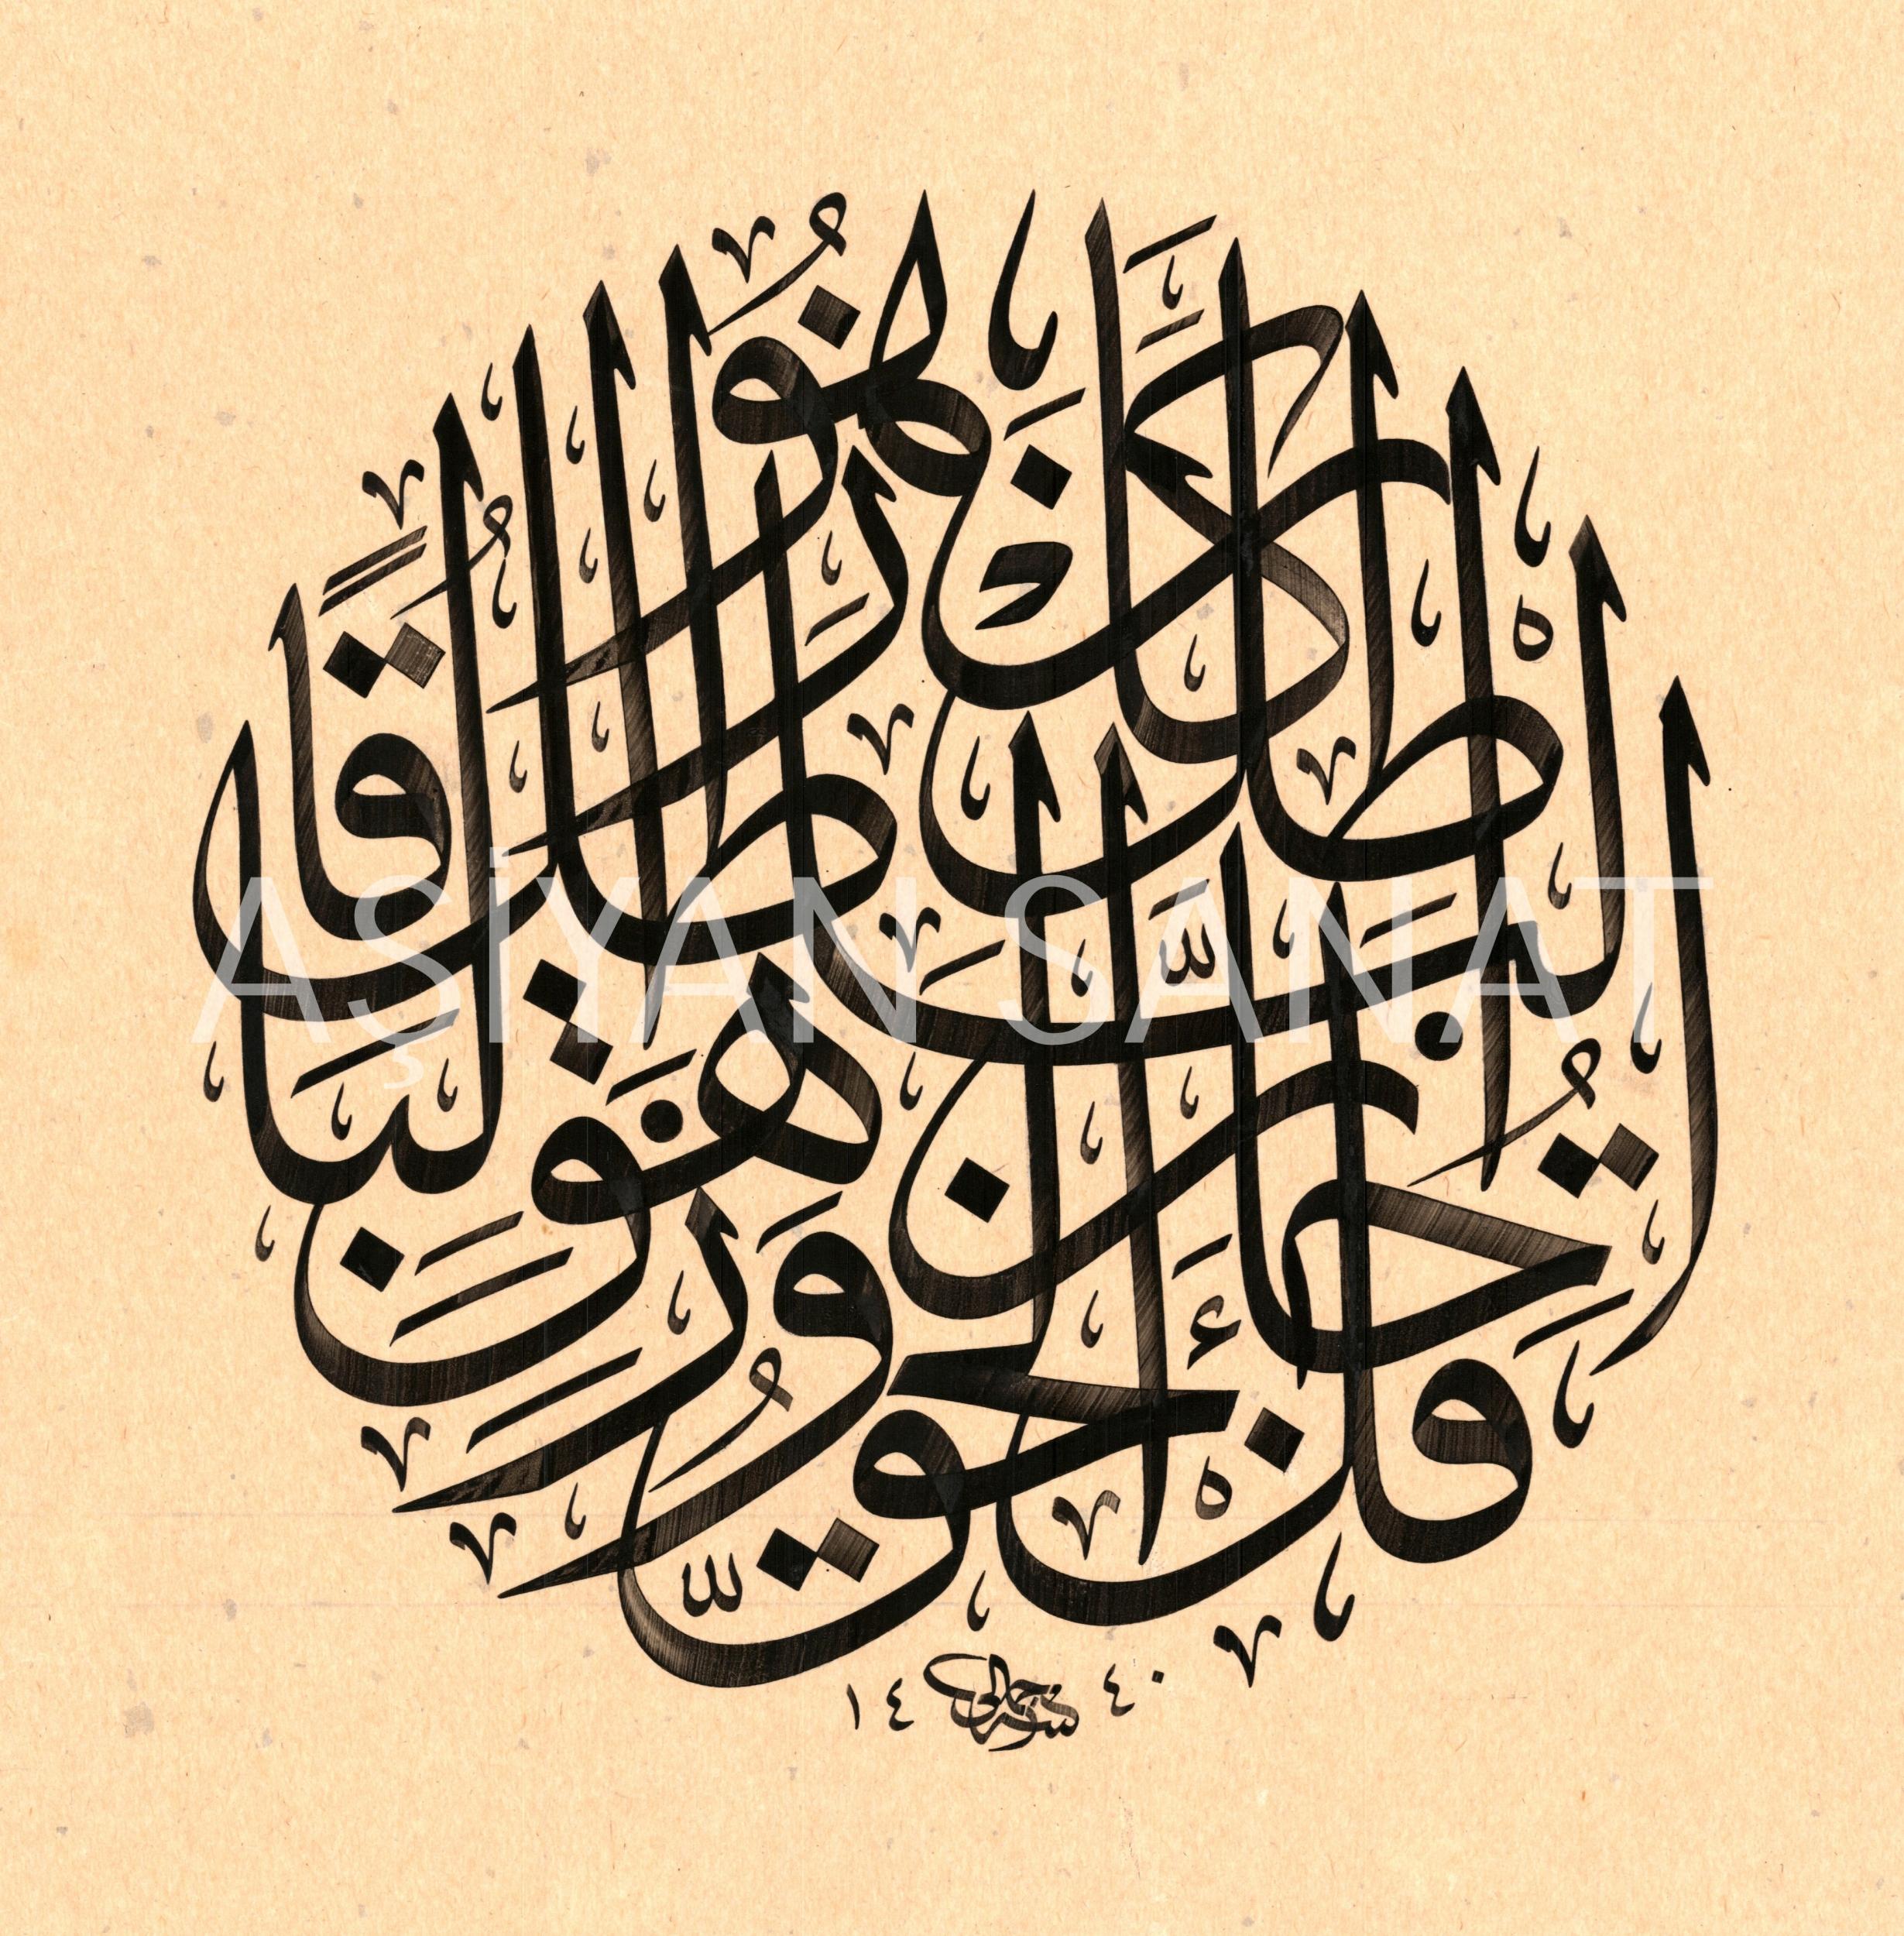 وقل جاء الحق وزهق الباطل
ان الباطل كان زهوقا
١٤٤٠
AŞİYAN SANAT